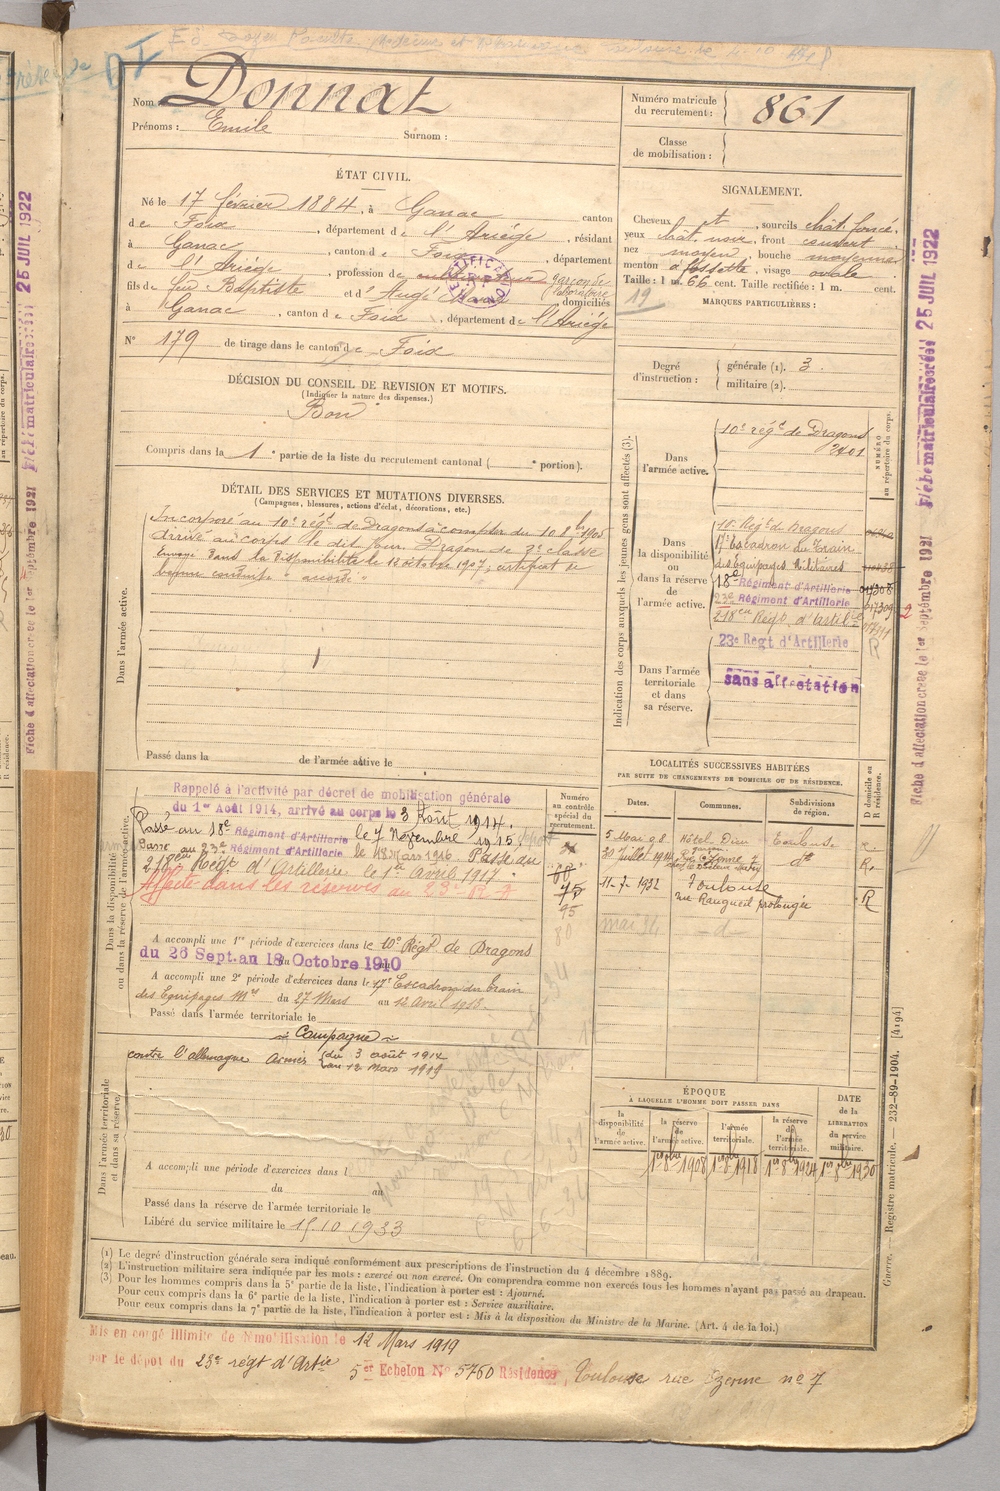 Nom : Donnat
Prénoms : Emile Surnom :
Numéro matricule du recrutement : 861
Classe de mobilisation :
ÉTAT CIVIL.
Né le 17 février 1884, à Ganac canton
de Foix, département de l'Ariège, résidant
à Ganac, canton de Foix, département
de l'Ariège, profession de cultivateur garçon de laboratoire
fils de feu Baptiste et d' domiciliés
à Ganac, canton de Foix, département de l'Ariège
N° 179 de tirage dans le canton de Foix
SIGNALEMENT.
Cheveux et, sourcils chât. foncé,
yeux chât. , front couvert
nez moyen, bouche moyenne
menton à fossette, visage ovale
Taille : 1 m. 66 cent. Taille rectifiée : 1 m. cent.
19
MARQUES PARTICULIÈRES :
Degré d'instruction : générale (1). 3.
militaire (2).
DÉCISION DU CONSEIL DE REVISION ET MOTIFS.
(Indiquer la nature des dispenses.)
Bon
Compris dans la 1e partie de la liste du recrutement cantonal ( e portion).
DÉTAIL DES SERVICES ET MUTATIONS DIVERSES.
(Campagnes, blessures, actions d'éclat, décorations, etc.)
Dans l'armée active.
Incorporé au 10e régt de Dragons à compter du 10 8bre 1905
arrivé au corps le dit jour, Dragon de 2e classe
Envoyé dans la disponibilité le 12 octobre 1907; certificat de
bonne conduite "accordé"
Passé dans la de l'armée active le
Indication des corps auxquels les jeunes gens sont affectés (3).
NUMÉRO au répertoire du corps.
Dans l'armée active.
10e régt de Dragons
2401
Dans la disponibilité ou dans la réserve de l'armée active.
10e Régt de Dragons
17e Escadron du Train
des Equipages Militaires
18e Régiment d'Artillerie 017308
23e Régiment d'Artillerie 017309
218eme Régt d'Artilie
R
Dans l'armée territoriale et dans sa réserve.
23e Regt d'Artillerie
sans affectation
Dans la disponibilité ou dans la réserve de l'armée active.
Rappelé à l'activité par décret de mobilisation générale
du 1er Août 1914, arrivé au corps le 3 Août 1914.
Passé au 18e Régiment d'Artillerie le 7 Novembre 1915
Passé au 23e Régiment d'Artillerie le 18 Mars 1916. Passé au
218eme Régt d'Artillerie le 1er Avril 1917.
Affecté dans les réserves au 23e R A
A accompli une 1re période d'exercices dans le 10e Régt de Dragons
du 26 Sept. au 18 Octobre 1910
A accompli une 2e période d'exercices dans le 17e Escadron du Train
des Equipages Mres du 27 Mars au 12 Avril 1913.
Passé dans l'armée territoriale le
Numéro au contrôle spécial du recrutement.
60
75
95
80
LOCALITÉS SUCCESSIVES HABITÉES
PAR SUITE DE CHANGEMENTS DE DOMICILE OU DE RÉSIDENCE.
Dates. Communes. Subdivisions de région. D domicile ou R résidence.
5 Mai 98 Hôtel Dieu Toulouse
30 Juillet 1914 do R.
11-7-1932 Toulouse R
rue Rangueil prolongée
mai 34 - d -
Dans l'armée territoriale et dans sa réserve.
Campagne
contre l'allemagne Armées du 3 août 1914
au 12 mars 1919
A accompli une période d'exercices dans l
du au
Passé dans la réserve de l'armée territoriale le
Libéré du service militaire le 15.10.1933
ÉPOQUE
À LAQUELLE L'HOMME DOIT PASSER DANS
la disponibilité de l'armée active.
la réserve de l'armée active. 1er 8bre 1908
l'armée territoriale. 1er 8bre 1918
la réserve de l'armée territoriale. 1er 8bre 1924
DATE de la LIBÉRATION du service militaire. 1er 8bre 1930
(1) Le degré d'instruction générale sera indiqué conformément aux prescriptions de l'instruction du 4 décembre 1889.
(2) L'instruction militaire sera indiquée par les mots : exercé ou non exercé. On comprendra comme non exercés tous les hommes n'ayant pas passé au drapeau.
(3) Pour les hommes compris dans la 5e partie de la liste, l'indication à porter est : Ajourné.
Pour ceux compris dans la 6e partie de la liste, l'indication à porter est : Service auxiliaire.
Pour ceux compris dans la 7e partie de la liste, l'indication à porter est : Mis à la disposition du Ministre de la Marine. (Art. 4 de la loi.)
Mis en congé illimité de démobilisation le 12 Mars 1919
par le dépôt du 23e régt d'Artie
5er Echelon No 5760 Résidence Toulouse rue no 7
Guerre. — Registre matricule. — 232-89-1904. [4194]
Fiche d'affectation créée le 1er Septembre 1921
Fiche matriculaire créée 25 JUIL 1922